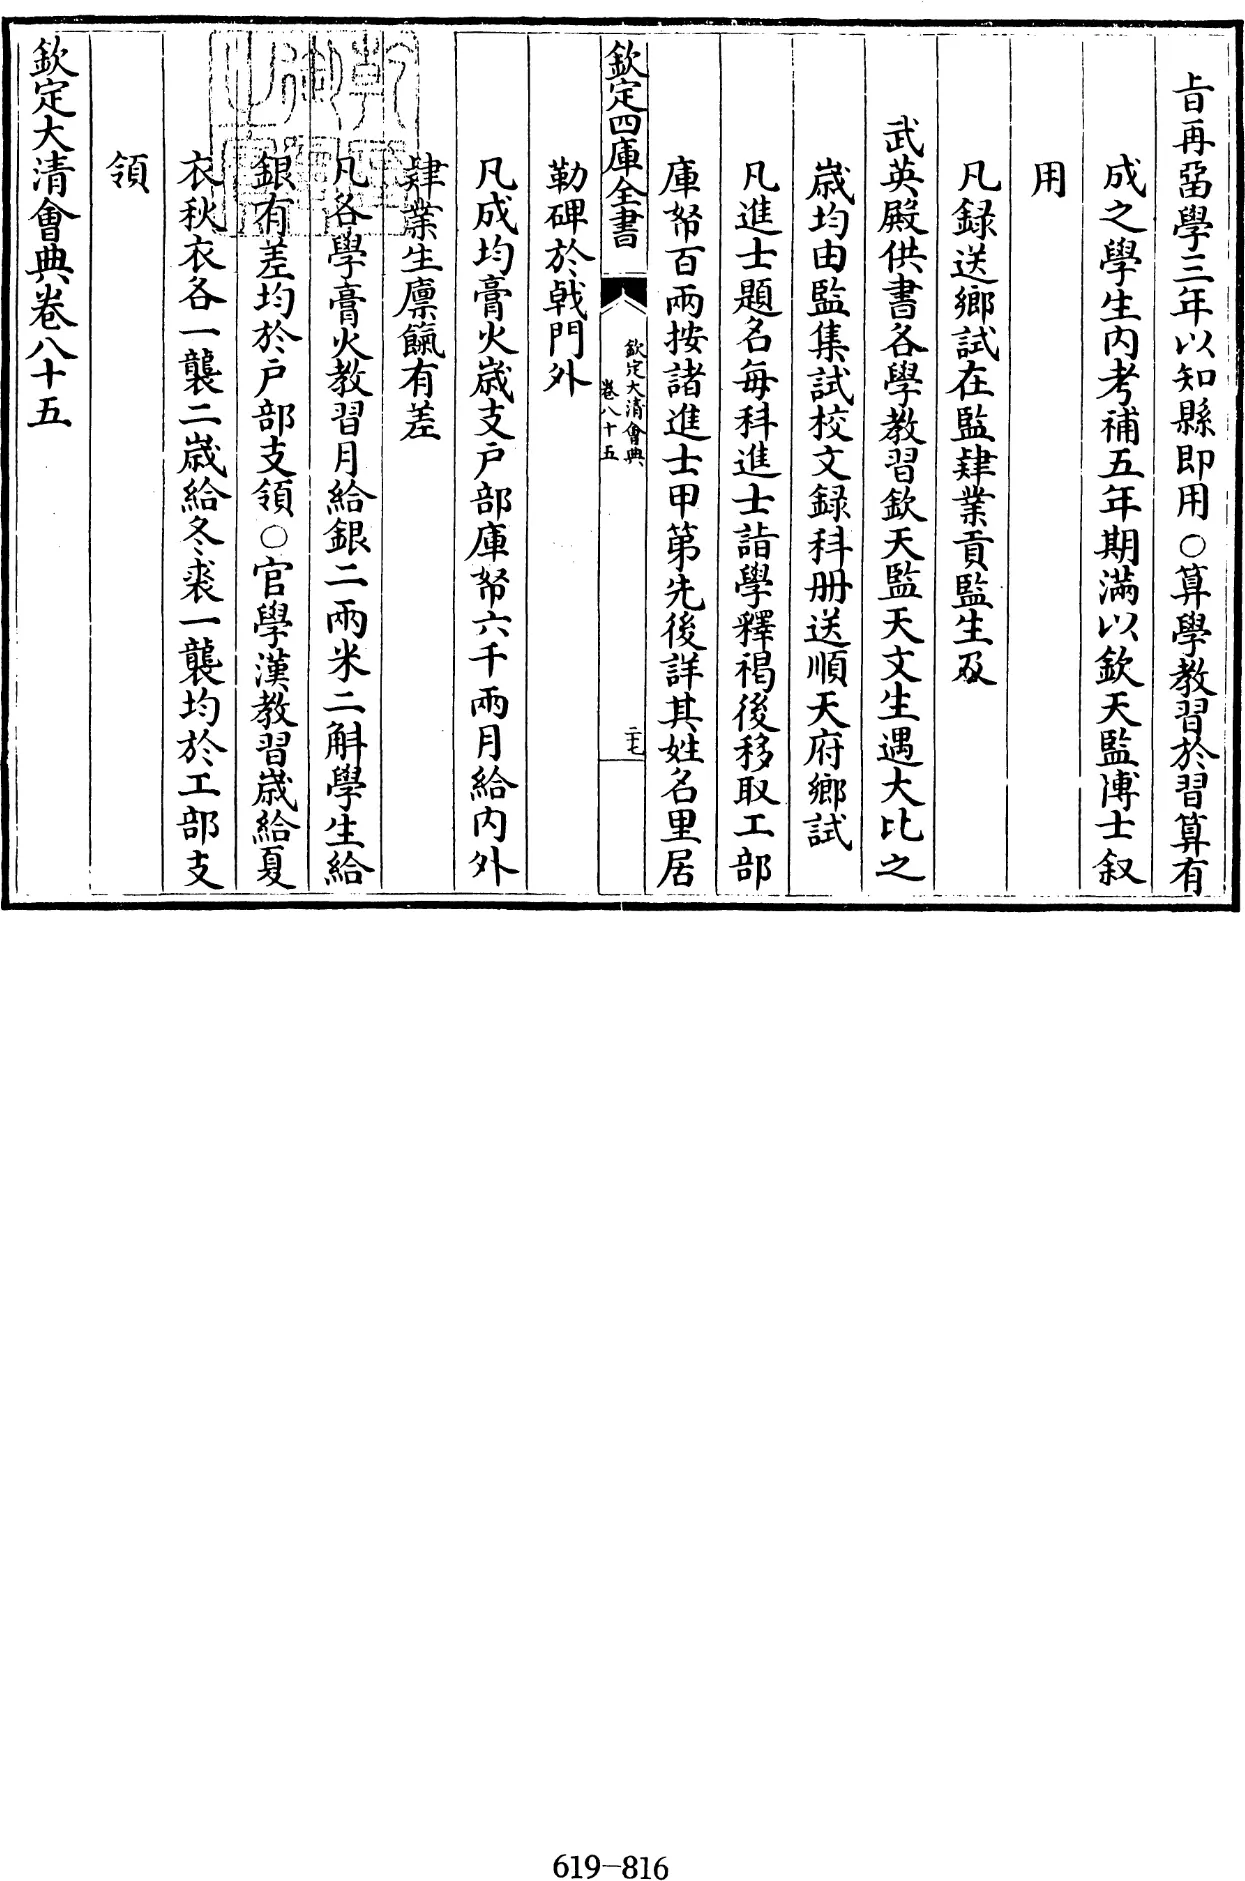 旨再留學三年以知縣即用○算學教習於習算有
成之學生内考補五年期滿以欽天監博士叙
用
凡録送鄉試在監肄業貢監生及
武英殿供書各學教習欽天監天文生遇大比之
歲均由監集試校文録科册送順天府鄉試
凡進士題名每科進士詣學釋褐後移取工部
庫帑百兩按諸進士甲第先後詳其姓名里居
欽定四庫全書
欽定大清會典
卷八十五
二十七
勒碑於戟門外
凡成均膏火歲支户部庫帑六千兩月給内外
肄業生廩餼有差
凡各學膏火教習月給銀二兩米二斛學生給
銀有差均於户部支領○官學漢教習歲給夏
衣秋衣各一襲二歲給冬裘一襲均於工部支
領
欽定大清會典卷八十五
619-816